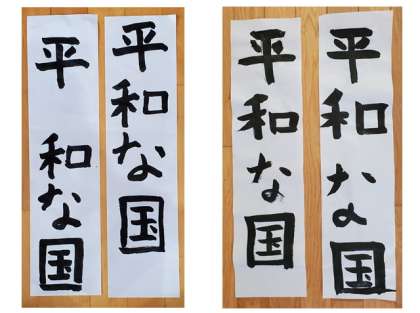 平和な国
平和な国
平和な国
平和な国